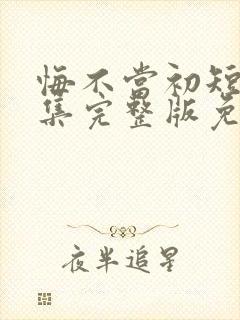 悔不当初短
集完整版免
夜半追星